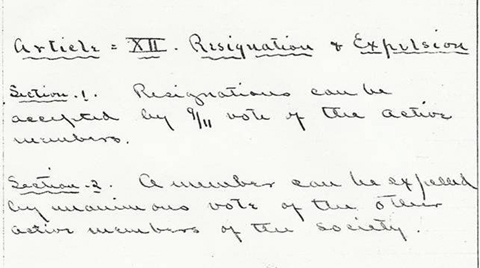 Article = XII. Resignation & Expulsion
Section.1. Resignations can be
accepted by 9/11 vote of the active
members.
Section.2. A member can be expelled
by unanimous vote of the other
active members of the Society.